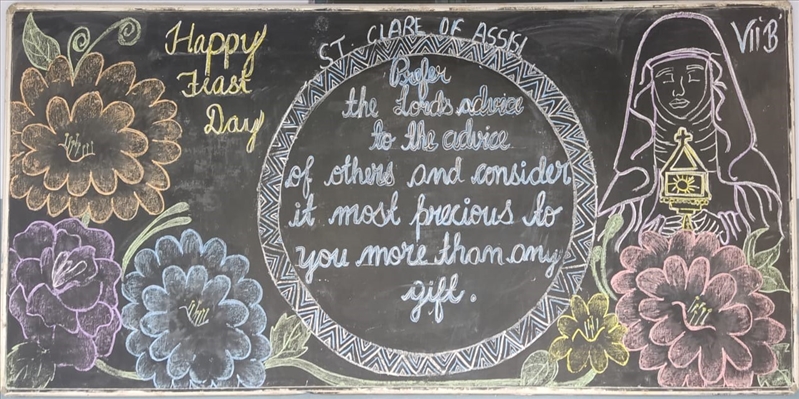 Happy
Feast
Day
ST. CLARE OF ASSISI
Prefer
the Lords advice
to the advice
of others and consider
it most precious to
you more than any
gift.
VII 'B'